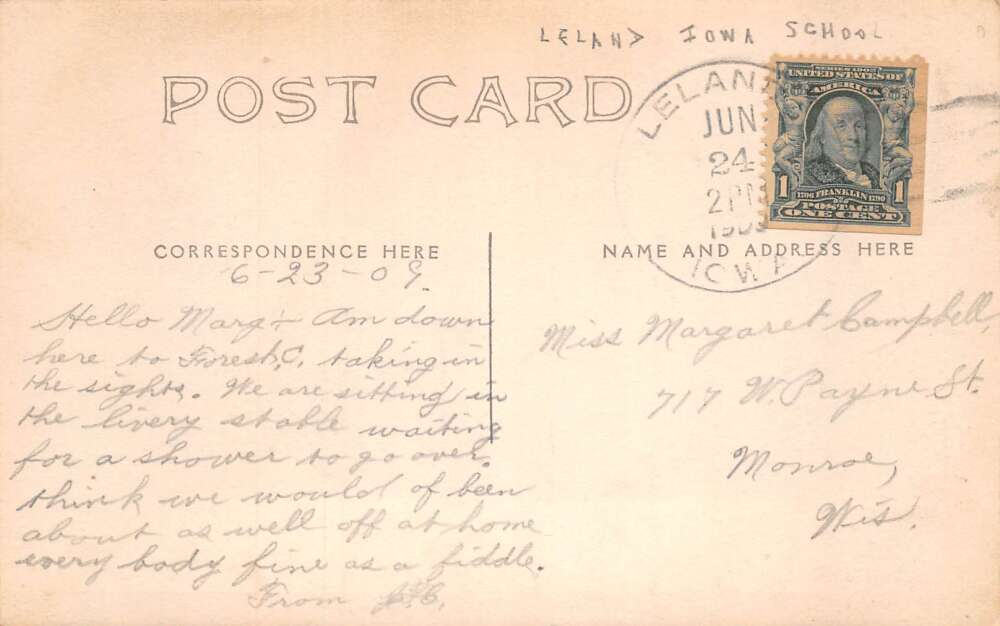 LELAND IOWA SCHOOL
POST CARD
LELAND
JUN
24
2 PM
1909
IOWA
SERIES 1902
UNITED STATES OF
AMERICA
1 1
1706 FRANKLIN 1790
POSTAGE
ONE CENT
CORRESPONDENCE HERE
6-23-09.
Hello Marg:- Am down
here to Forest, C. taking in
the sights. We are sitting in
the livery stable waiting
for a shower to go over.
think we would of been
about as well off at home
every body fine as a fiddle.
From
NAME AND ADDRESS HERE
Miss Margaret Campbell,
717 W. Payne St.
Monroe,
Wis.